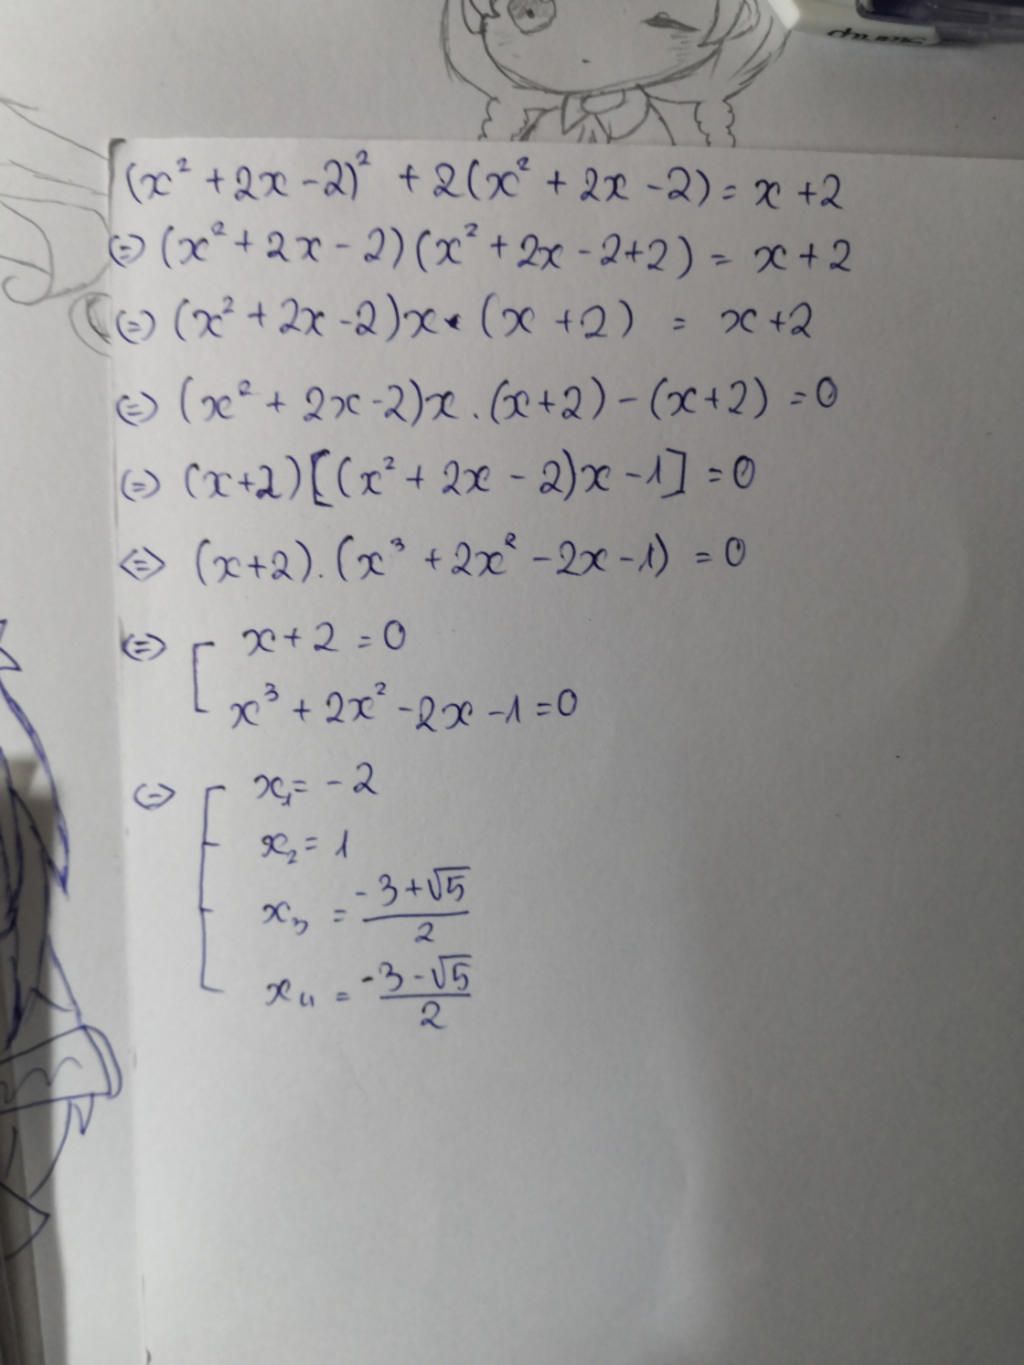 (x² + 2x - 2)² + 2(x² + 2x - 2) = x + 2
(=) (x² + 2x - 2)(x² + 2x - 2 + 2) = x + 2
(=) (x² + 2x - 2)x . (x + 2) = x + 2
(=) (x² + 2x - 2)x . (x + 2) - (x + 2) = 0
(=) (x + 2)[(x² + 2x - 2)x - 1] = 0
<=> (x + 2) . (x³ + 2x² - 2x - 1) = 0
(=) [ x + 2 = 0
x³ + 2x² - 2x - 1 = 0
<=> [ x₁ = -2
x₂ = 1
x₃ = (-3 + √5)/2
x₄ = (-3 - √5)/2